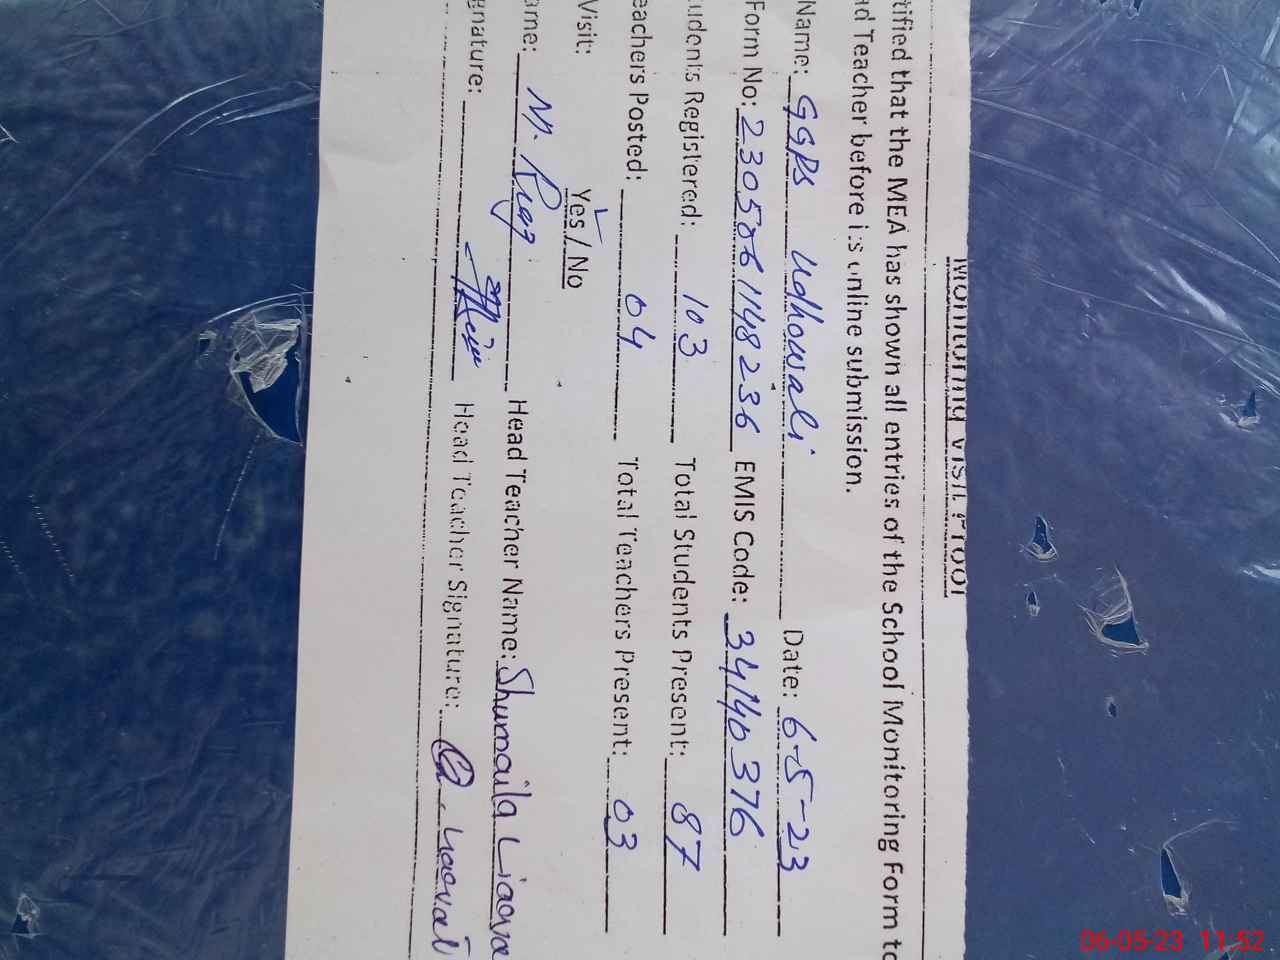 Monitoring Visit Proof
tified that the MEA has shown all entries of the School Monitoring Form to
ad Teacher before its online submission.
Name: GGPS Udhowali Date: 6-5-23
Form No: 2305061148236 EMIS Code: 34140376
udents Registered: 103 Total Students Present: 87
eachers Posted: 04 Total Teachers Present: 03
Visit: Yes / No
ame: M. Head Teacher Name: Shumaila Liaqva
gnature: Head Teacher Signature:
06-05-23 11:52